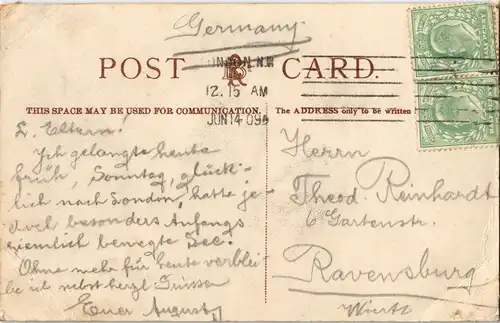 Germany.
POST CARD.
LONDON. N.W
12. 15 AM
JUN 14 09
THIS SPACE MAY BE USED FOR COMMUNICATION.
The ADDRESS only to be written
L. Eltern!
Ich gelangte heute
früh, Sonntag, glück-
lich nach London, hatte je-
doch besonders Anfangs
ziemlich bewegte See.
Ohne mehr für heute verblei-
be ich nebst herzl Grüssen
Euer August
Herrn
Theod. Reinhardt
6 Gartenstr.
Ravensburg